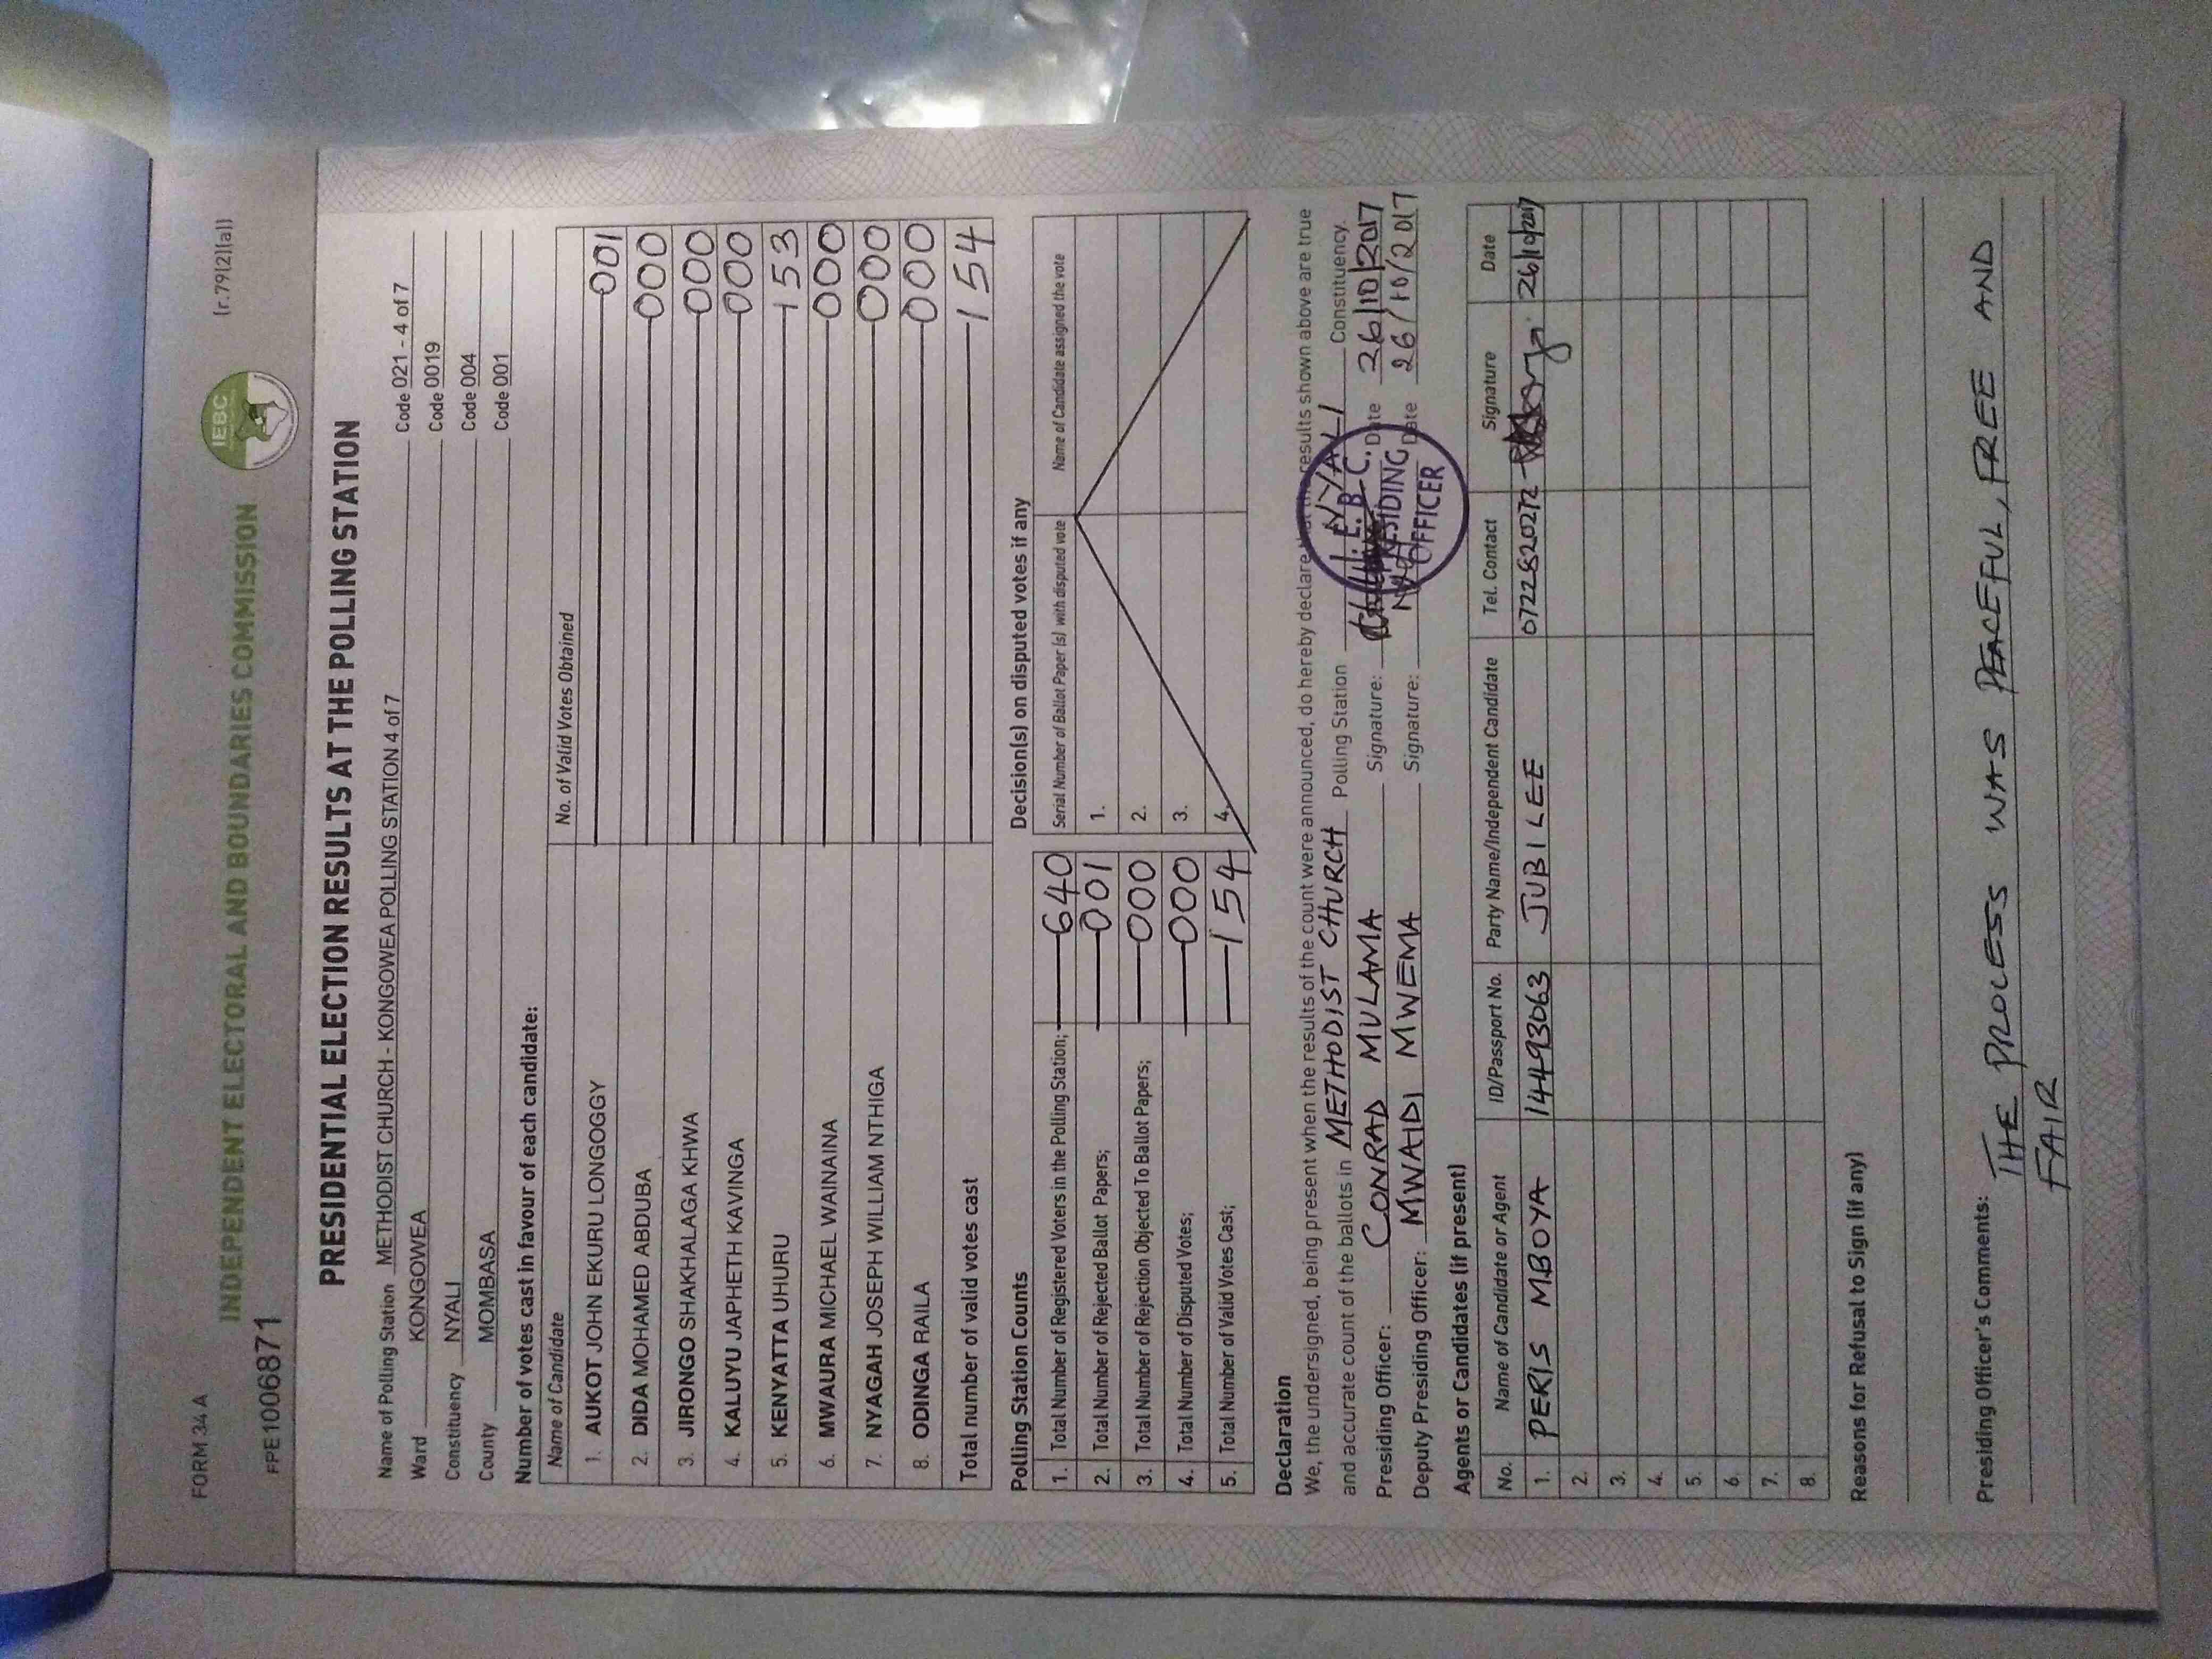 FORM 34 A
(r.79(2)(a))
IEBC
INDEPENDENT ELECTORAL AND BOUNDARIES COMMISSION
FPE1006871
PRESIDENTIAL ELECTION RESULTS AT THE POLLING STATION
Name of Polling Station METHODIST CHURCH - KONGOWEA POLLING STATION 4 of 7 Code 021 - 4 of 7
Ward KONGOWEA Code 0019
Constituency NYALI Code 004
County MOMBASA Code 001
Number of votes cast in favour of each candidate:
Name of Candidate No. of Valid Votes Obtained
1. AUKOT JOHN EKURU LONGOGGY 001
2. DIDA MOHAMED ABDUBA 000
3. JIRONGO SHAKHALAGA KHWA 000
4. KALUYU JAPHETH KAVINGA 000
5. KENYATTA UHURU 153
6. MWAURA MICHAEL WAINAINA 000
7. NYAGAH JOSEPH WILLIAM NTHIGA 000
8. ODINGA RAILA 000
Total number of valid votes cast 154
Polling Station Counts
1. Total Number of Registered Voters in the Polling Station; 640
2. Total Number of Rejected Ballot Papers; 001
3. Total Number of Rejection Objected To Ballot Papers; 000
4. Total Number of Disputed Votes; 000
5. Total Number of Valid Votes Cast; 154
Decision(s) on disputed votes if any
Serial Number of Ballot Paper (s) with disputed vote Name of Candidate assigned the vote
1.
2.
3.
4.
Declaration
We, the undersigned, being present when the results of the count were announced, do hereby declare that the results shown above are true
and accurate count of the ballots in METHODIST CHURCH Polling Station NYALI Constituency.
Presiding Officer: CONRAD MULAMA Signature: Date 26/10/2017
Deputy Presiding Officer: MWAIDI MWEMA Signature: Date 26/10/2017
I.E.B.C.
PRESIDING
OFFICER
Agents or Candidates (if present)
No. Name of Candidate or Agent ID/Passport No. Party Name/Independent Candidate Tel. Contact Signature Date
1. PERIS MBOYA 14493063 JUBILEE 0722820272 26/10/2017
2.
3.
4.
5.
6.
7.
8.
Reasons for Refusal to Sign (if any)
Presiding Officer's Comments: THE PROCESS WAS PEACEFUL, FREE AND
FAIR